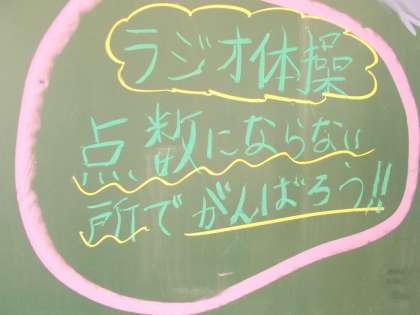 ラジオ体操
点数にならない
所でがんばろう!!